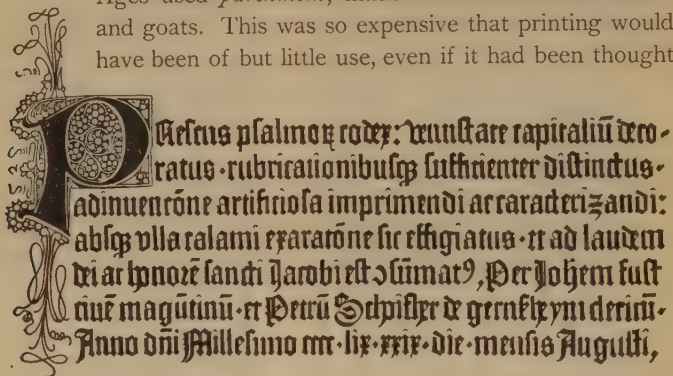 Ages used parchment, made
and goats. This was so expensive that printing would
have been of but little use, even if it had been thought
PResens psalmoꝝ codex: venustate capitaliū deco-
ratus·rubricationibusqꝫ sufficienter distinctus·
adinuencōne artificiosa imprimendi ac caracterizandi:
absqꝫ vlla calami exaracōne sic effigiatus·et ad laudem
dei ac honorē sancti Jacobi est ↄsūmatꝰ, Per Johēm fust
ciuē magūtinū·et Petrū Schoiffher de gernssheym clericū·
Anno dn̄i Millesimo cccc·lix·xxix·die·mensis Augusti,